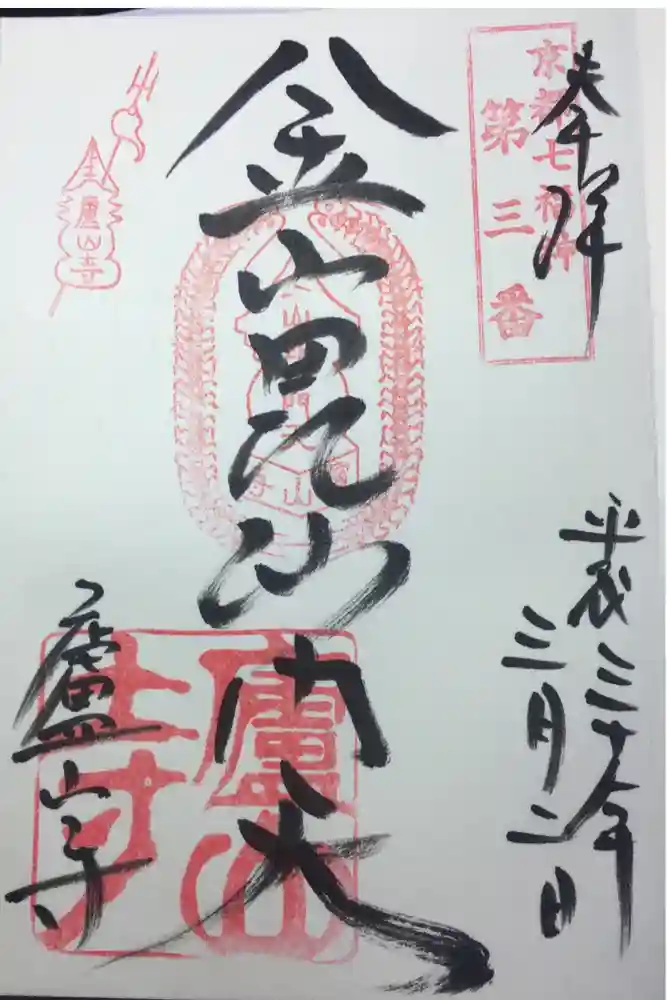 奉拝
京都七福神
第三番
平成三十年
三月二日
金山毘沙門天
廬山寺
廬山寺
廬山寺